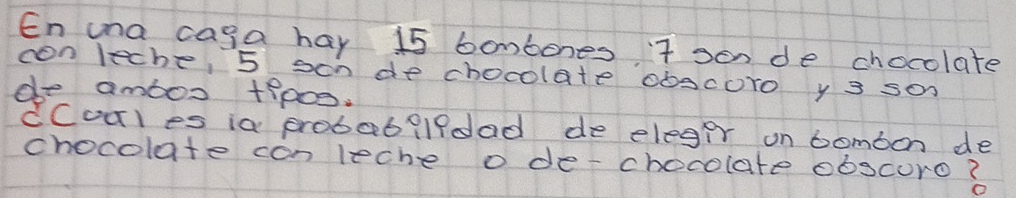 En una caga hay 15 bombones. 7 son de chocolate
con leche, 5 son de chocolate obscuro y 3 son
de ambos tipos.
¿Cual es la probabilidad de elegir un bombon de
chocolate con leche o de-chocolate obscuro?